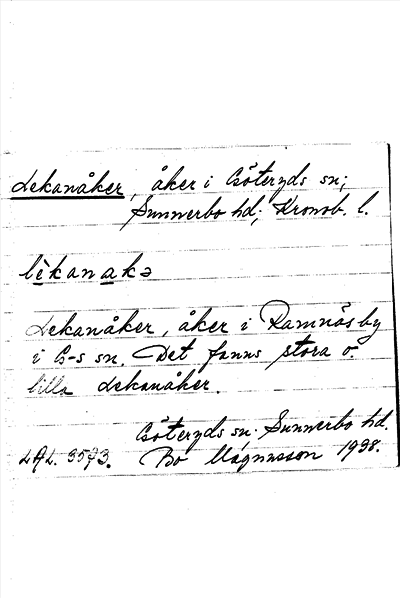 Lekanåker, åker i Göteryds sn;
Sunnerbo hd; Kronob. l.
lèkanakə
Lekanåker, åker i Ramnäs by
i G-s sn. Det fanns stora o.
lilla Lekanåker.
Göteryds sn. Sunnerbo hd.
LAL. 3573. Bo Magnusson 1938.